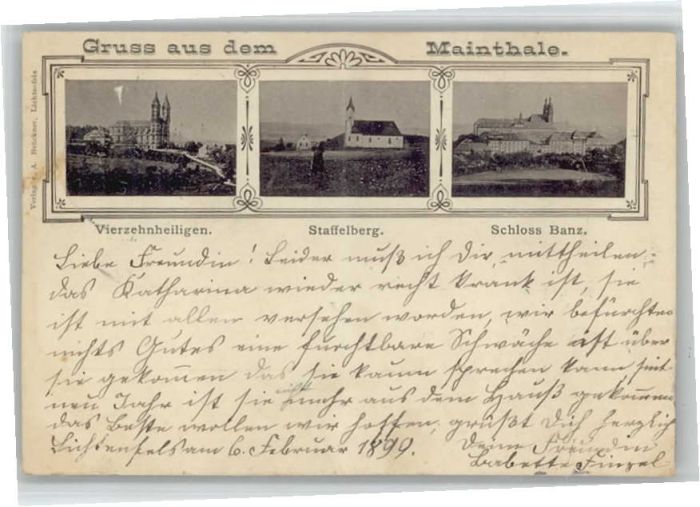 Gruss aus dem Mainthale.
Verlag v. A. Brückner, Lichtenfels
Vierzehnheiligen. Staffelberg. Schloss Banz.
Liebe Freundin! Leider muß ich dir mittheilen
das Katharina wieder recht krank ist, sie
ist mit allen versehen worden, wir befürchten
nichts Gutes eine furchtbare Schwäche ist über
sie gekommen das sie kaum sprechen kann, seit
neu Jahr ist sie nicht mehr aus dem Hauß gekommen
das Beste wollen wir hoffen, grüßt Dich herzlich
Lichtenfels am 6. Februar 1899. Deine Freundin
Babette Finzel